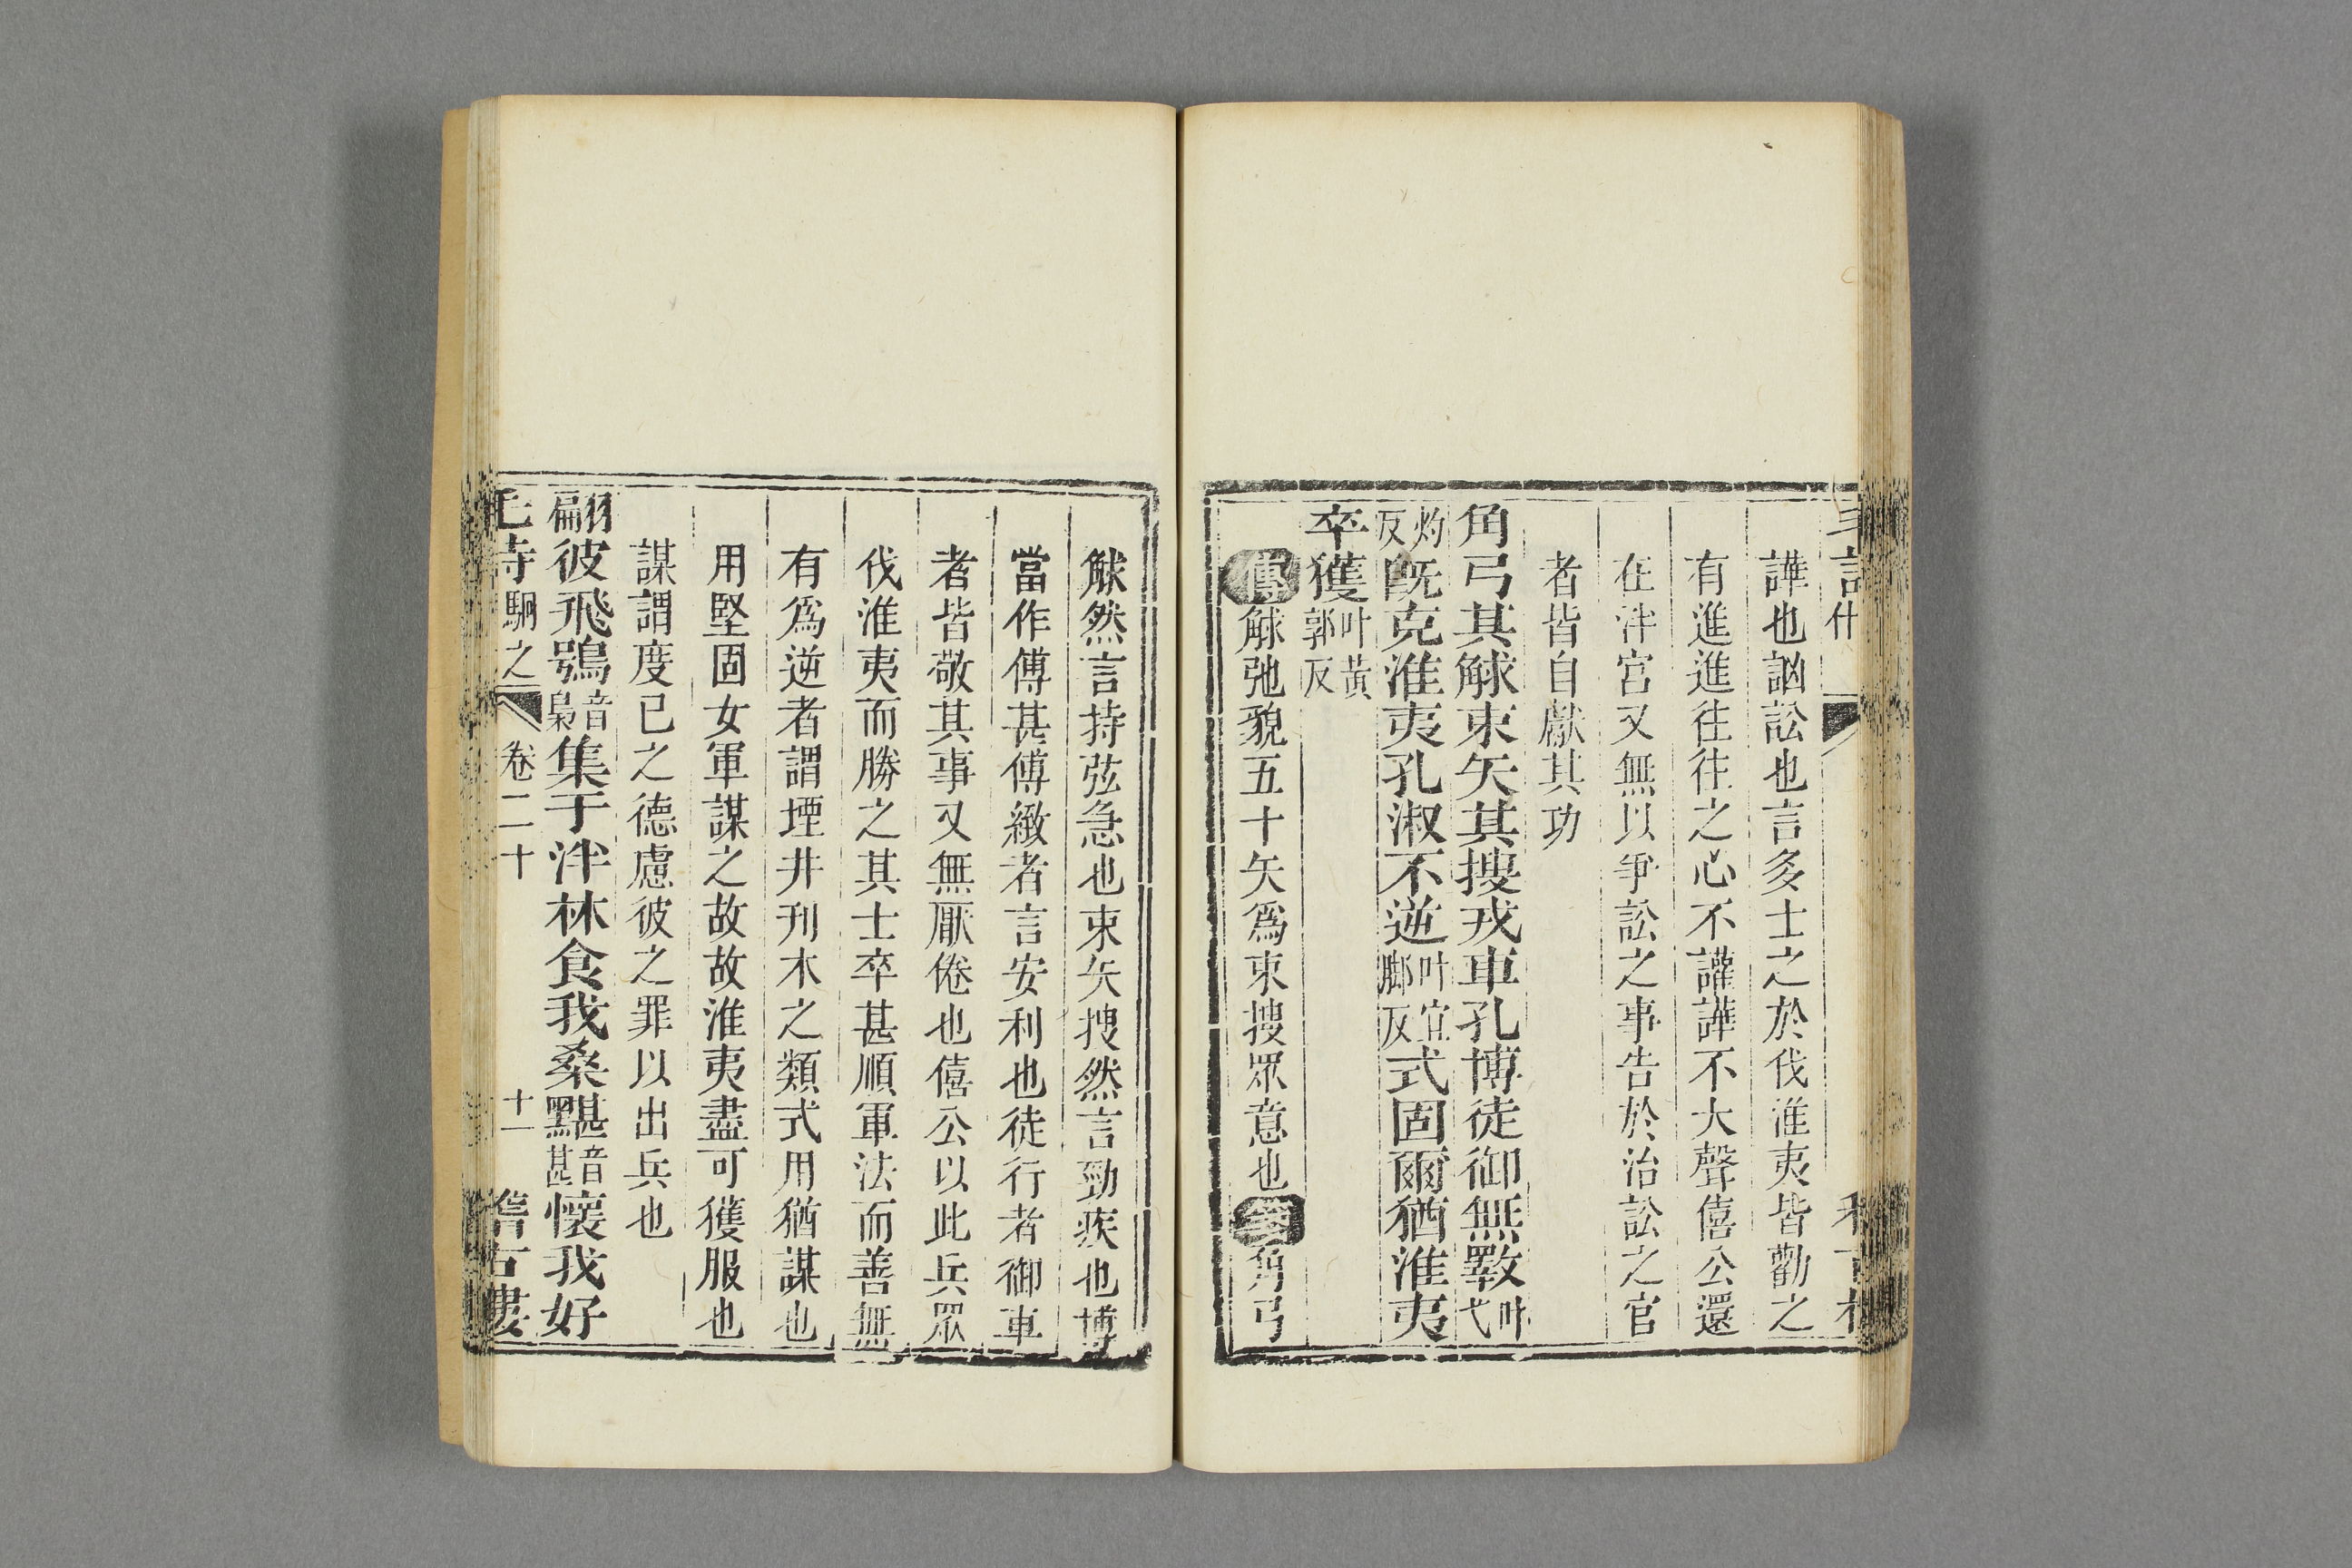 譁也訩訟也言多士之於伐淮夷皆勸之
有進進往往之心不讙譁不大聲僖公還
在泮宮又無以爭訟之事告於治訟之官
者皆自獻其功
角弓其觩束矢其搜戎車孔博徒御無斁叶弋
灼反旣克淮夷孔淑不逆叶宜腳反式固爾猶淮夷
卒獲叶黃郭反
傳觩弛貌五十矢爲束搜眾意也箋角弓
觩然言持弦急也束矢搜然言勁疾也博
當作傅甚傅緻者言安利也徒行者御車
者皆敬其事又無厭倦也僖公以此兵眾
伐淮夷而勝之其士卒甚順軍法而善無
有爲逆者謂堙井刊木之類式用猶謀也
用堅固女軍謀之故故淮夷盡可獲服也
謀謂度己之德慮彼之罪以出兵也
翩彼飛鴞音梟集于泮林食我桑黮音甚懷我好
駉之 卷二十 十一